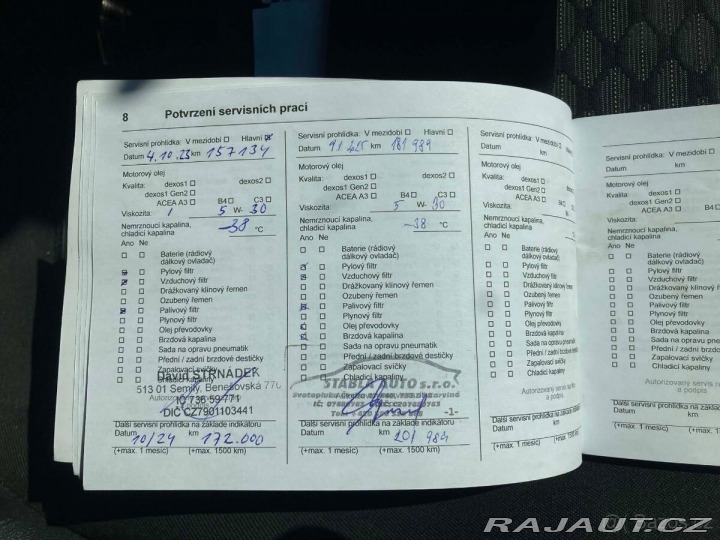 8 Potvrzení servisních prací
Servisní prohlídka: V mezidobí Hlavní
Datum 4.10.23 km 157134
Motorový olej
Kvalita: dexos1 dexos2
dexos1 Gen2
ACEA A3 B4 C3
Viskozita: 5 W- 30
Nemrznoucí kapalina,
chladicí kapalina -38 °C
Ano Ne
Baterie (rádiový
dálkový ovladač)
Pylový filtr
Vzduchový filtr
Drážkovaný klínový řemen
Ozubený řemen
Palivový filtr
Plynový filtr
Olej převodovky
Brzdová kapalina
Sada na opravu pneumatik
Přední / zadní brzdové destičky
Zapalovací svíčky
Chladicí kapaliny
DAVID STRNÁDEK
513 01 Semily, Benešovská 77
IČ 736 59 771
DIČ CZ7901103441
Další servisní prohlídka na základě indikátoru
Datum km
10/24 172.000
(+max. 1 měsíc) (+max. 1500 km)
Servisní prohlídka: V mezidobí Hlavní
Datum km 181 984
Motorový olej
Kvalita: dexos1 dexos2
dexos1 Gen2
ACEA A3 B4 C3
Viskozita: 5 W- 30
Nemrznoucí kapalina,
chladicí kapalina -38 °C
Ano Ne
Baterie (rádiový
dálkový ovladač)
Pylový filtr
Vzduchový filtr
Drážkovaný klínový řemen
Ozubený řemen
Palivový filtr
Plynový filtr
Olej převodovky
Brzdová kapalina
Sada na opravu pneumatik
Přední / zadní brzdové destičky
Zapalovací svíčky
Chladicí kapaliny
STABLO AUTO s.r.o.
-1-
Další servisní prohlídka na základě indikátoru
Datum km
201 984
(+max. 1 měsíc) (+max. 1500 km)
Servisní prohlídka: V mezidobí
Datum km
Motorový olej
Kvalita: dexos1
dexos1 Gen2
ACEA A3 B4
Viskozita: W-
Nemrznoucí kapalina,
chladicí kapalina
Ano Ne
Baterie (rádiový
dálkový ovladač)
Pylový filtr
Vzduchový filtr
Drážkovaný klínový
Ozubený řemen
Palivový filtr
Plynový filtr
Olej převodovky
Brzdová kapalina
Sada na opravu
Přední / zadní
Zapalovací svíčky
Chladicí kapaliny
Autorizovaný
a podpis
Další servisní prohlídka na
Datum
(+max. 1 měsíc)
Servisní prohlídka:
Datum
Motorový olej
Kvalita: dexos1
dexos1 Gen2
ACEA A3
Viskozita:
Nemrznoucí kapalina,
chladicí kapalina
Ano Ne
Baterie (rádiový
dálkový ovladač)
Pylový filtr
Vzduchový filtr
Drážkovaný klínový
Ozubený řemen
Palivový filtr
Plynový filtr
Olej převodovky
Brzdová kapalina
Sada na opravu
Přední / zadní
Zapalovací svíčky
Chladicí kapaliny
Autorizovaný servis
a podpis
RAJAUT.CZ